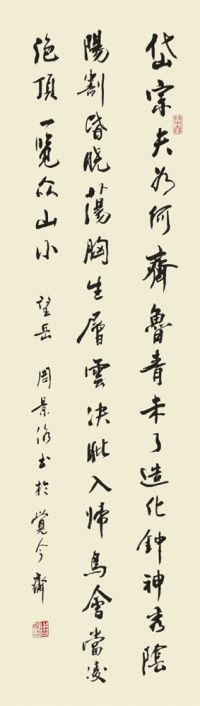 岱宗夫为何齊魯青未了造化钟神秀陰
陽割昏晓蕩胸生層雲决眦入帰鳥會當凌
绝頂一览众山小 望岳 周景书於覺今齋